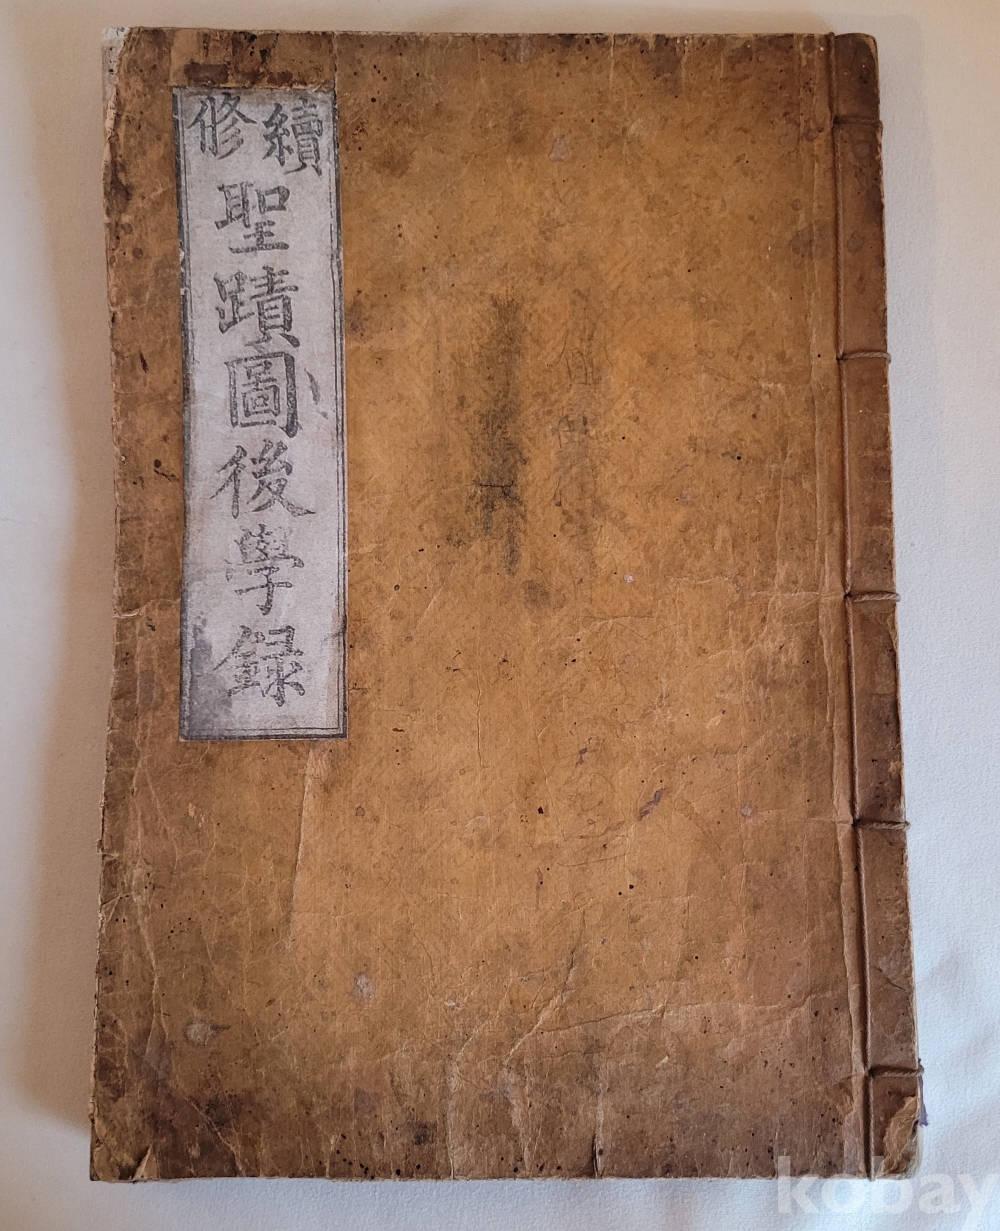 續修
聖蹟圖後學錄
kobay